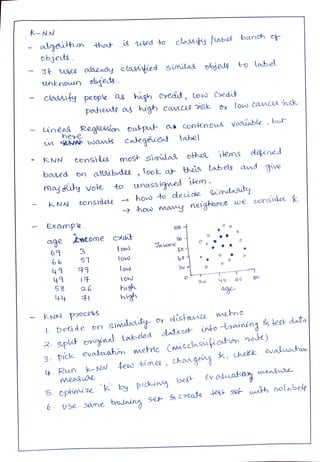 K-NN
- algorithm that is used to classify /label bunch of
objects.
- It uses already classified similar objects to label
unknown objects.
- classify people as high credit, low credit
patients as high cancer risk or low cancer risk
- Linear Regression output as continous variable, but
here
in wants categorical label
- KNN considers most similar other items defined
based on attributes, look at their labels and give
majority vote to unassigned item.
- KNN considers → how to decide similarity
→ how many neighbors we consider k
- Example.
age Income credit
69 3 low
66 57 low
49 79 low
49 17 low
58 26 high
44 71 high
Income
age
- KNN process
1. Decide on similarity or distance metric
2. split original labeled dataset into training & test data
3. pick evaluation metric (misclassification rate)
4. Run k-NN few times, changing k, check evaluation
measure
5. optimize k by picking best evaluation measure.
6. use same training set & create test set with no labels